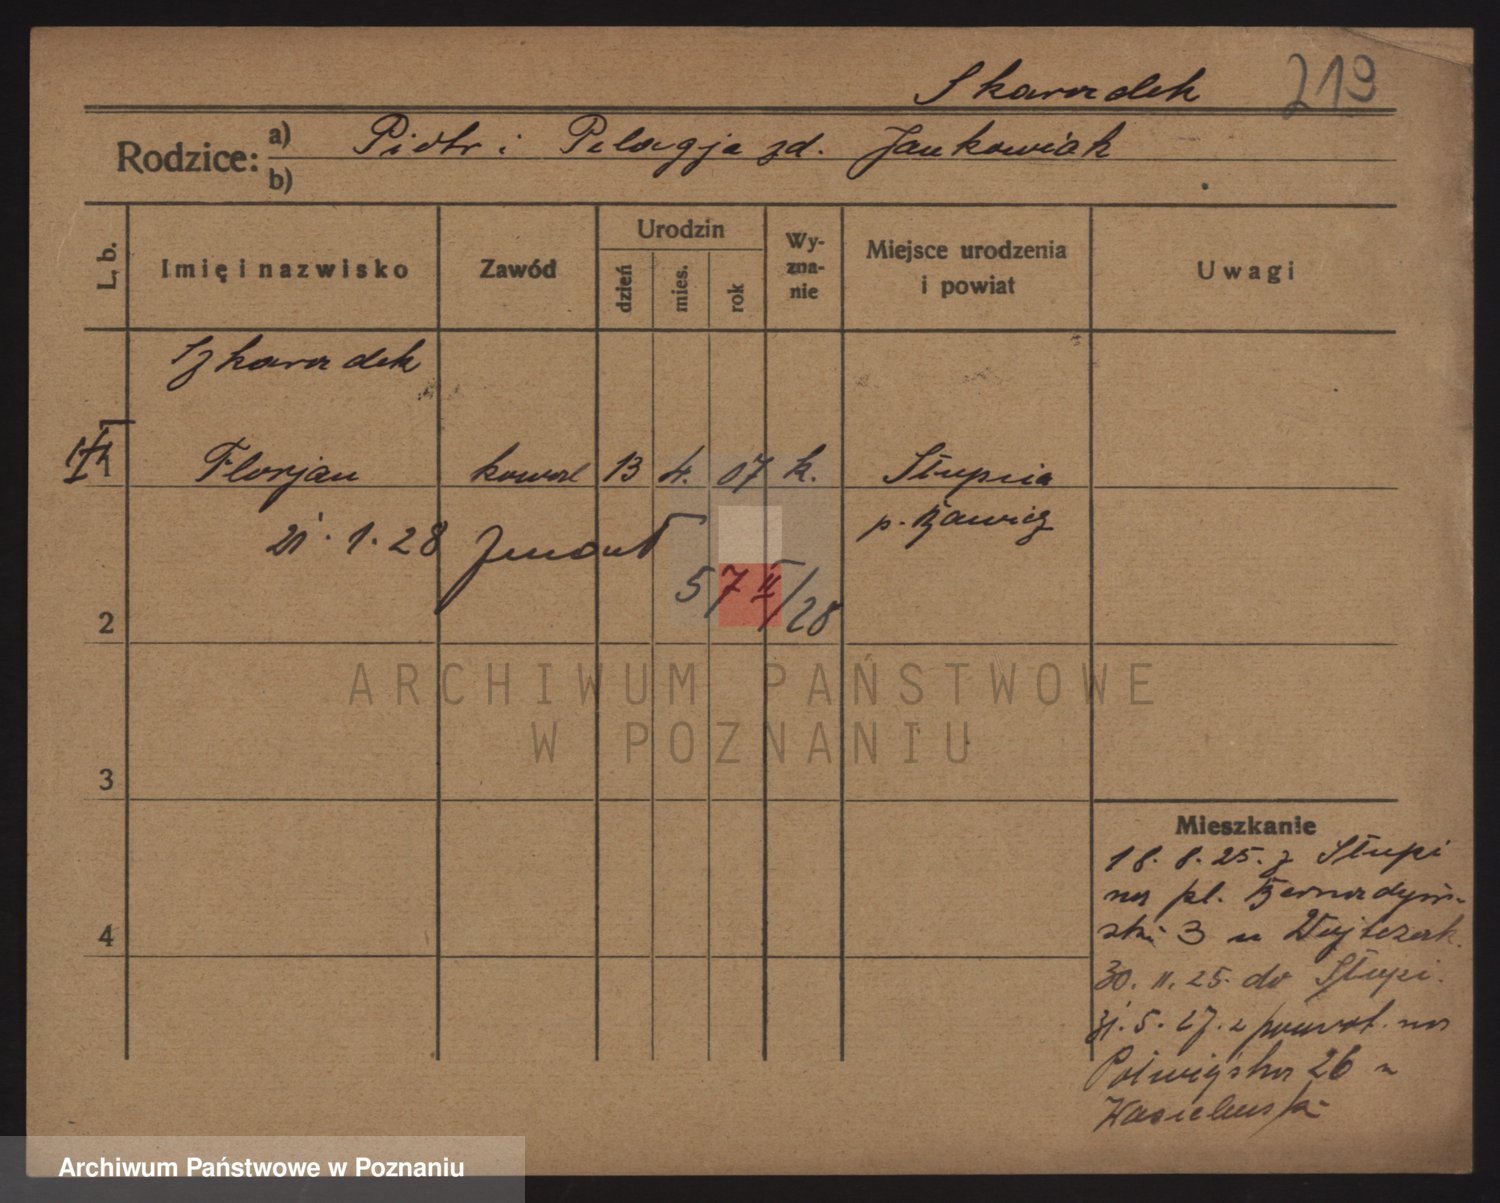 Skaradek 219
Rodzice: a) Piotr i Pelagja zd. Jankowiak
b)
L. b. Imię i nazwisko Zawód Urodzin dzień mies. rok Wyznanie Miejsce urodzenia i powiat Uwagi
Szkaradek
1 Florjan kowal 13 4. 07 k. Słupia
p. Rawicz
21. 1. 28 zmarł
57 II/28
2
3
4
Mieszkanie
18. 8. 25. z Słupi
na pl. Bernardyń-
ski 3 u Wojtczak.
30. 11. 25. do Słupi.
31. 5. 27. z powrot. na
Półwiejska 26 u
ARCHIWUM PAŃSTWOWE
W POZNANIU
Archiwum Państwowe w Poznaniu